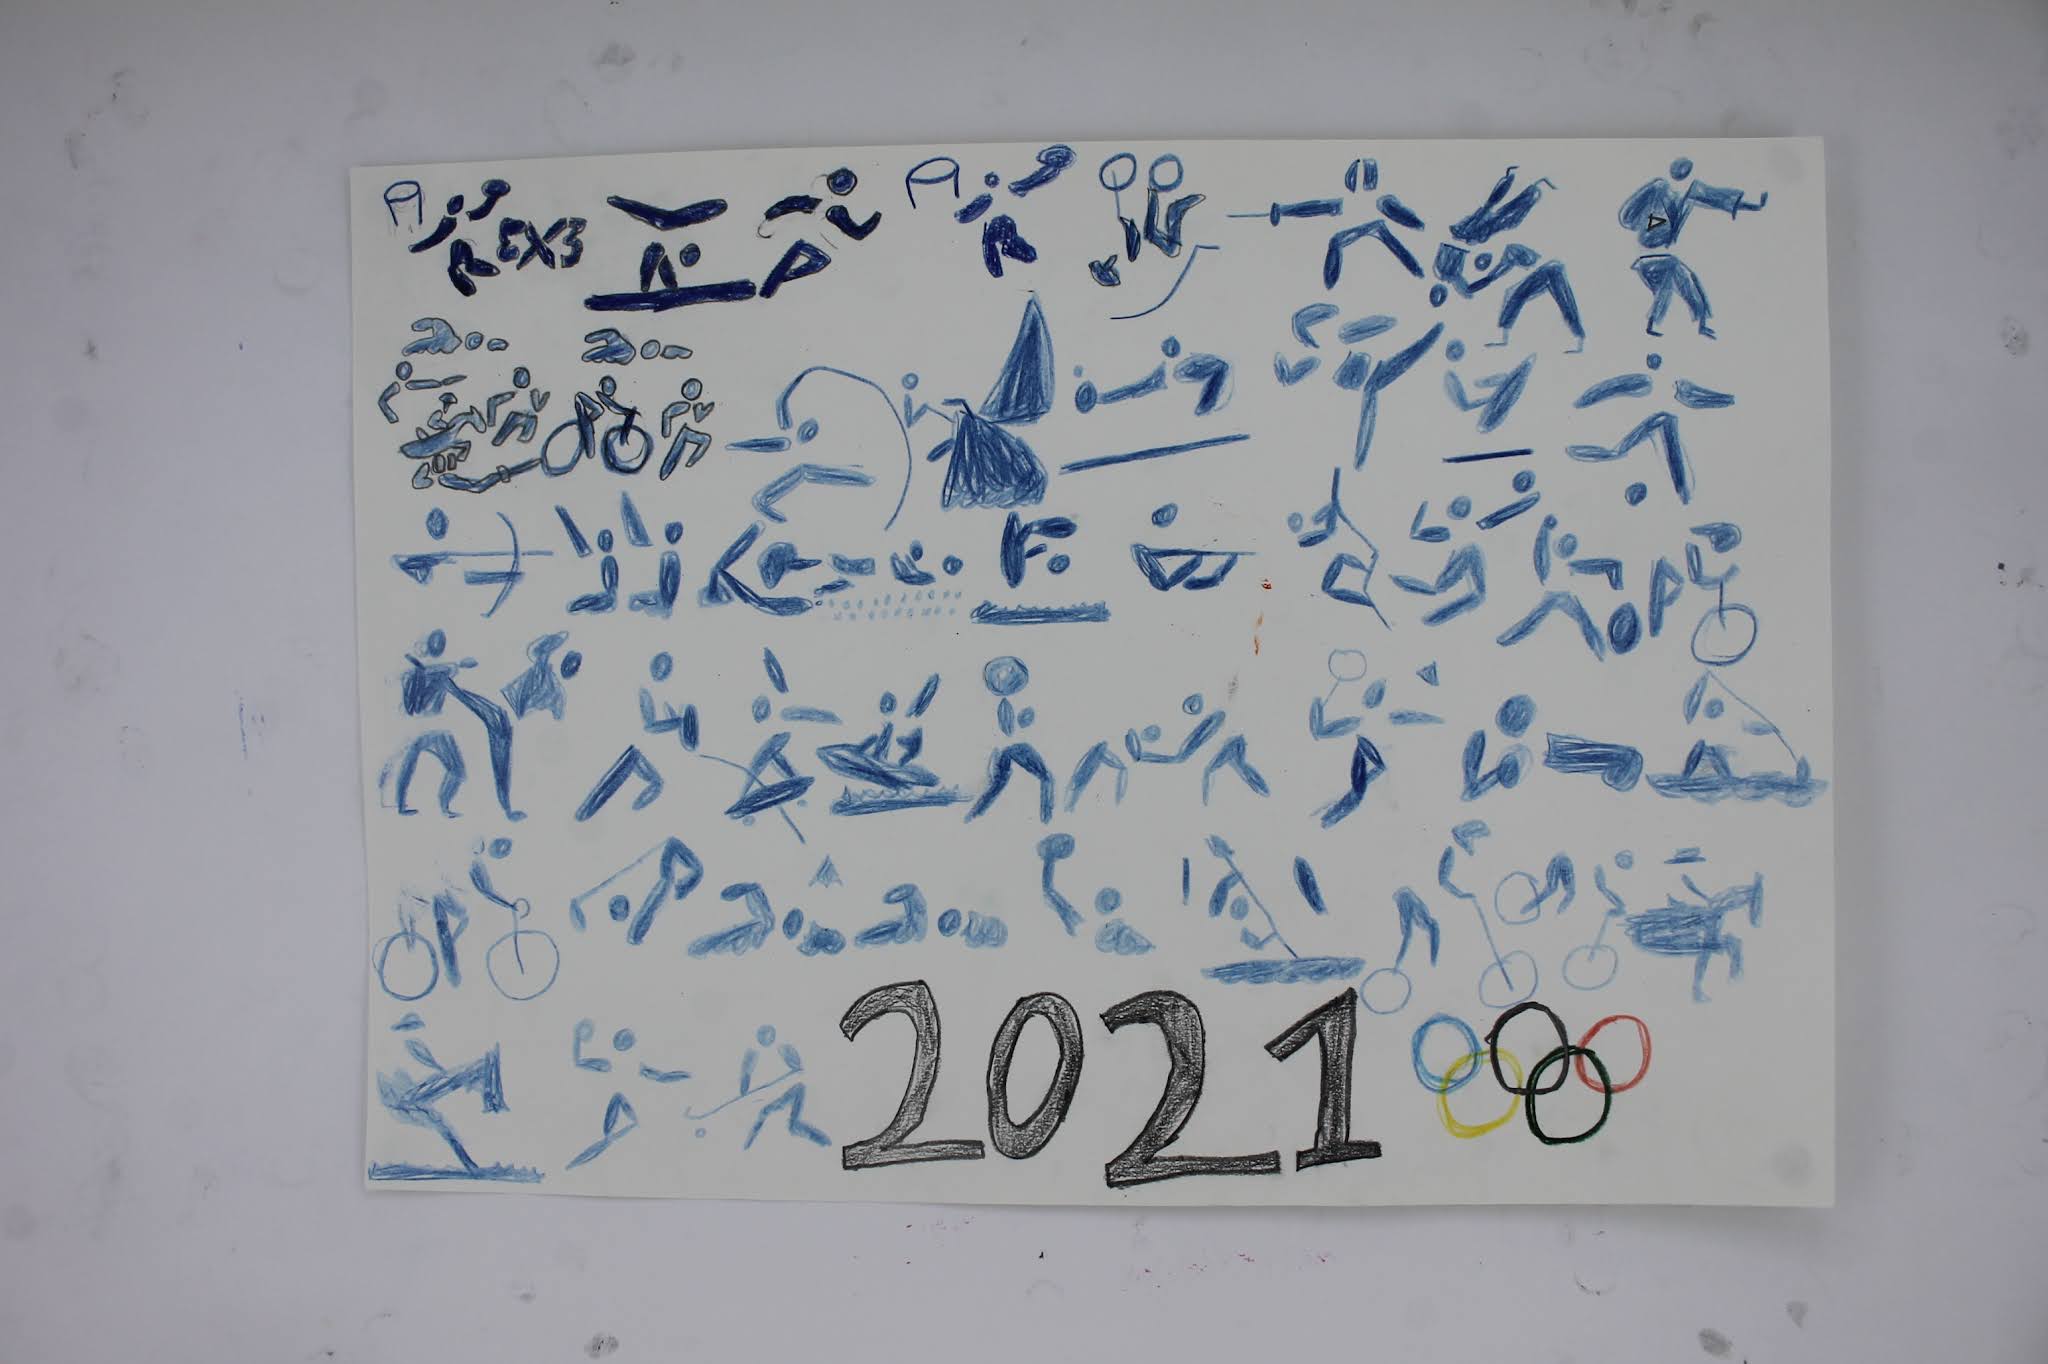 EX3
2021